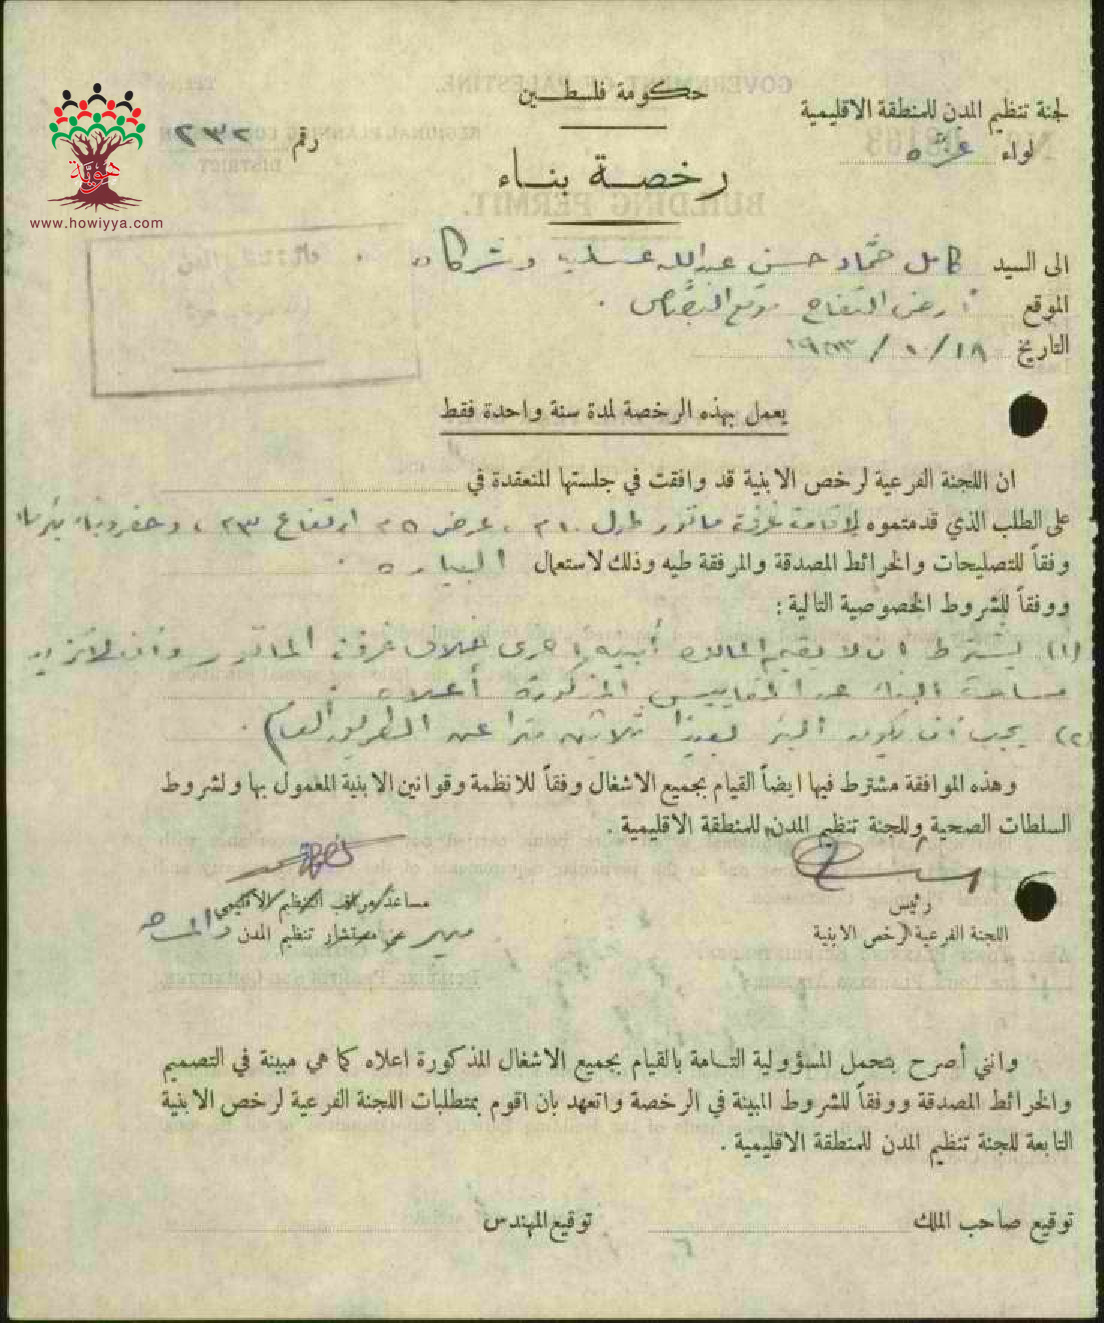 حكومة فلسطين
لجنة تنظيم المدن للمنطقة الاقليمية
لواء غزة
رقم ٢٣٢
رخصة بناء
هوية
www.howiyya.com
الى السيد كامل حمّاد حسن عبدالله عسليه وشركاه
الموقع ارض التفاح موقع
التاريخ ١٨/١٠/
يعمل بهذه الرخصة لمدة سنة واحدة فقط
ان اللجنة الفرعية لرخص الابنية قد وافقت في جلستها المنعقدة في
على الطلب الذي قدمتموه لاقامة غرفة ماتور طول ، عرض ٢٥ ارتفاع ٢٣ ، وحفر
وفقاً للتصليحات والخرائط المصدقة والمرفقة طيه وذلك لاستعمال البياره .
ووفقاً للشروط الخصوصية التالية :
(١) يشترط ان لا يقيم المالك أبنيه اخرى خلاف غرفة الماتور وان لا تزيد
مساحة البناء عن المقاييس المذكورة أعلاه .
(٢) يجب ان يكون البئر بعيدا ثلاثين مترا عن الطريق العام .
وهذه الموافقة مشترط فيها ايضاً القيام بجميع الاشغال وفقاً للانظمة وقوانين الابنية المعمول بها ولشروط
السلطات الصحية وللجنة تنظيم المدن للمنطقة الاقليمية .
رئيس
اللجنة الفرعية لرخص الابنية
مساعد مراقب التنظيم الاقليمي
عن مستشار تنظيم المدن
وانني أصرح بتحمل المسؤولية التامة بالقيام بجميع الاشغال المذكورة اعلاه كما هي مبينة في التصميم
والخرائط المصدقة ووفقاً للشروط المبينة في الرخصة واتعهد بان اقوم بمتطلبات اللجنة الفرعية لرخص الابنية
التابعة للجنة تنظيم المدن للمنطقة الاقليمية .
توقيع صاحب الملك
توقيع المهندس